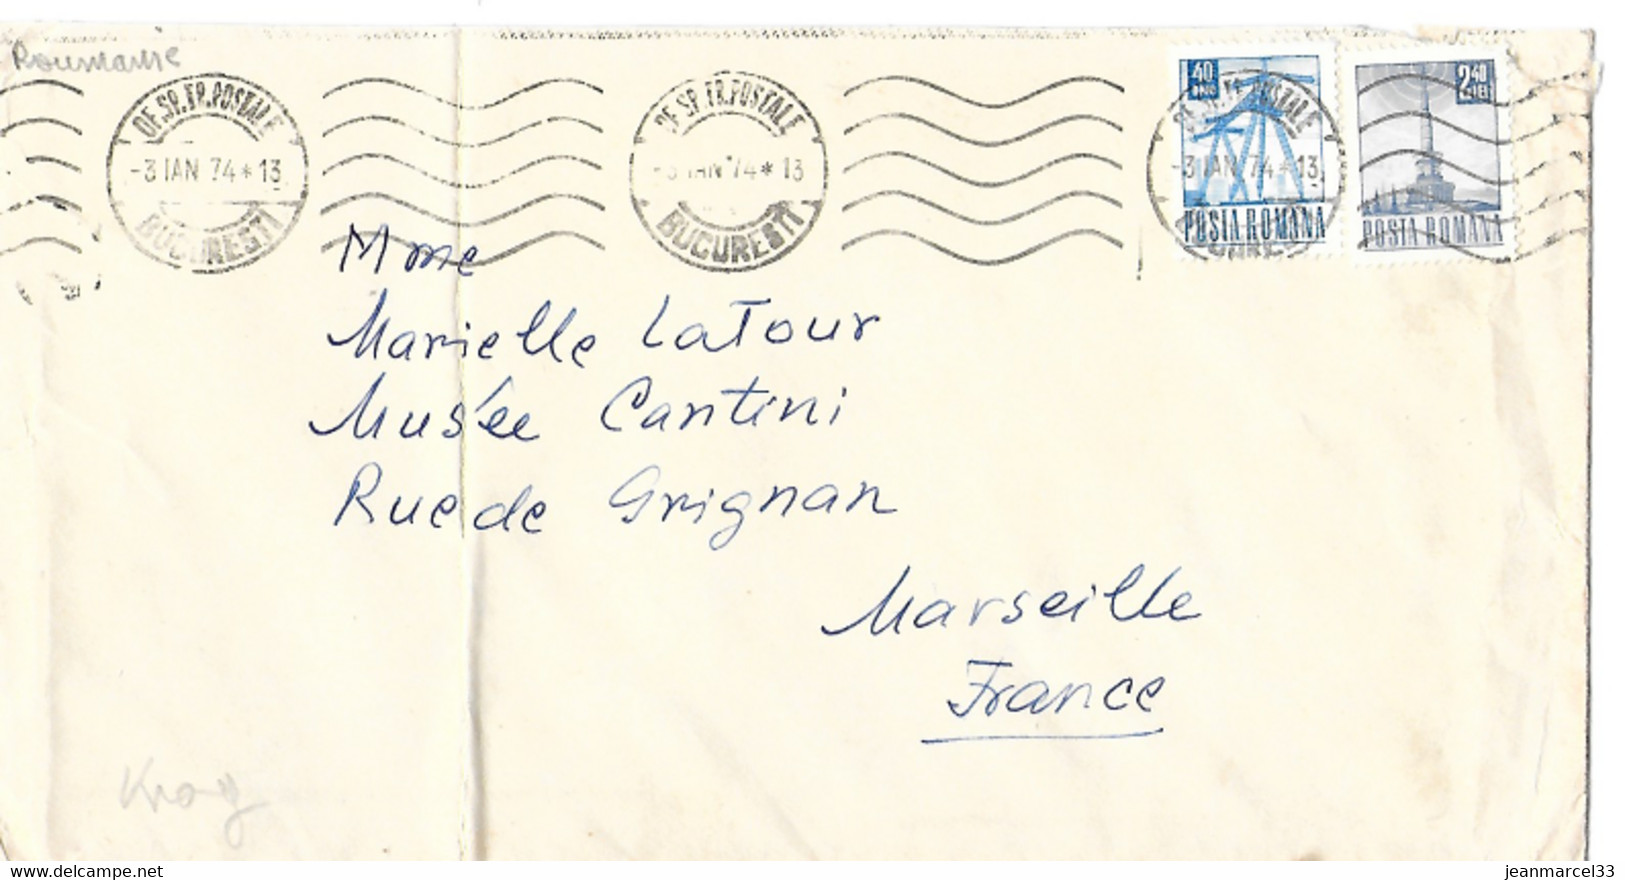 Roumanie
OF.SP.TR.POSTALE
-3 IAN 74 * 13
BUCUREȘTI
OF.SP.TR.POSTALE
-3 IAN 74 * 13
BUCUREȘTI
-3 IAN 74 * 13
40
BANI
POSTA ROMANA
2,40
LEI
POSTA ROMANA
Mme
Marielle LaTour
Musée Cantini
Rue de Grignan
Marseille
France
jeanmarcel33